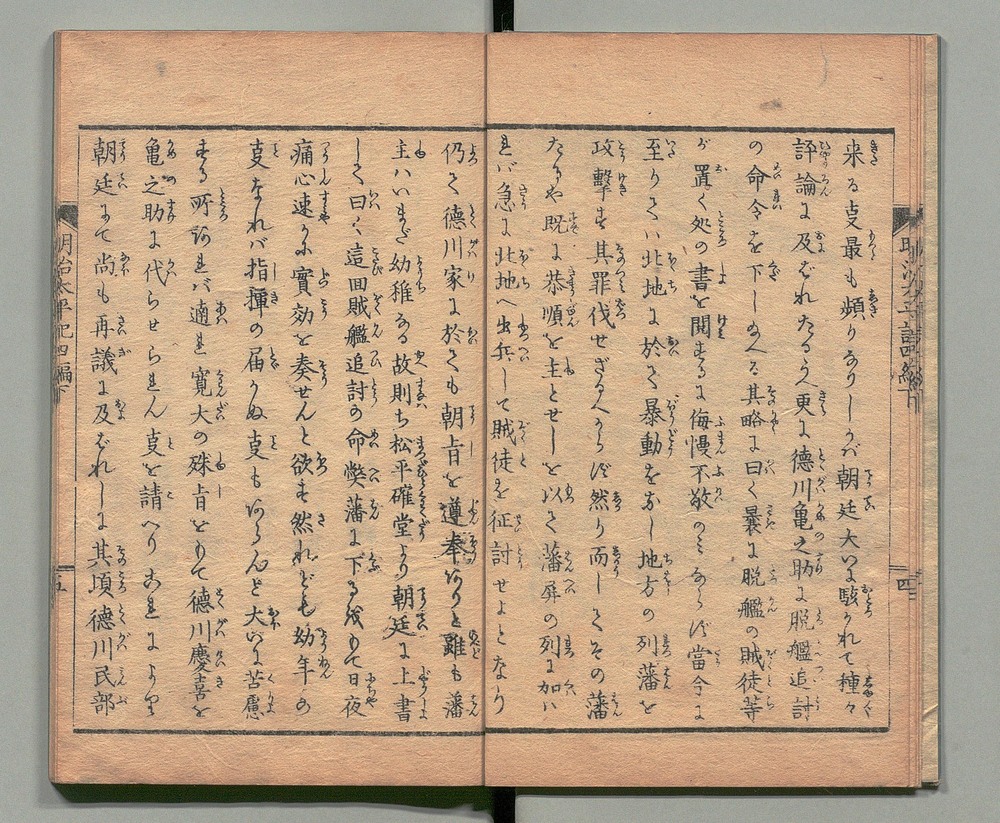 来る支最も頻りありしかバ朝廷大いに駭かれて種々
評論に及ばれたるうへ更に徳川亀之助に脱艦追討
の命令を下し給へる其略に曰く曩に脱艦の賊徒等
が置く処の書を閲するに侮慢不敬のミならず當今に
至りてハ北地に於て暴動をなし地方の列藩を
攻撃す其罪伐せざるべからず然り而してその藩
たるや既に恭順を主とせしを以て藩屏の列に加ハ
れバ急に北地へ出兵して賊徒を征討せよとなり
仍て徳川家に於ても朝旨を遵奉ありと雖も藩
主ハいまだ幼稚なる故則ち松平確堂より朝廷に上書
して曰く這回賊艦追討の命弊藩に下るを以て日夜
痛心速かに實効を奏せんと欲す然れども幼年の
支なれバ指揮の届かぬ支もあらんと大いに苦慮
する所あれバ適れ寛大の殊旨をもて徳川慶喜を
亀之助に代らせられん支を請へりこれによりて
朝廷にて尚も再議に及ばれしに其頃徳川民部
明治太平記四編下
四
明治太平記四編下
五